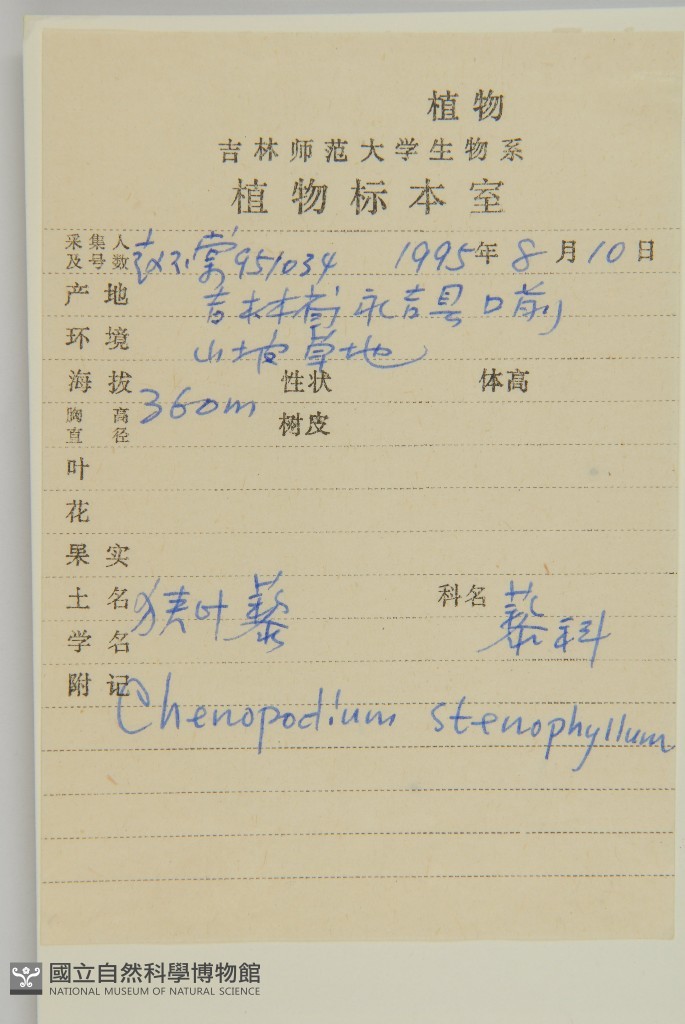 植物
吉林师范大学生物系
植物标本室
采集人及号数 951034 1995年8月10日
产地 吉林省永吉县口前
环境 山坡草地
海拔 360m 性状 体高
胸高直径 树皮
叶
花
果实
土名 狭叶藜 科名 藜科
学名
附记 Chenopodium stenophyllum
國立自然科學博物館
NATIONAL MUSEUM OF NATURAL SCIENCE